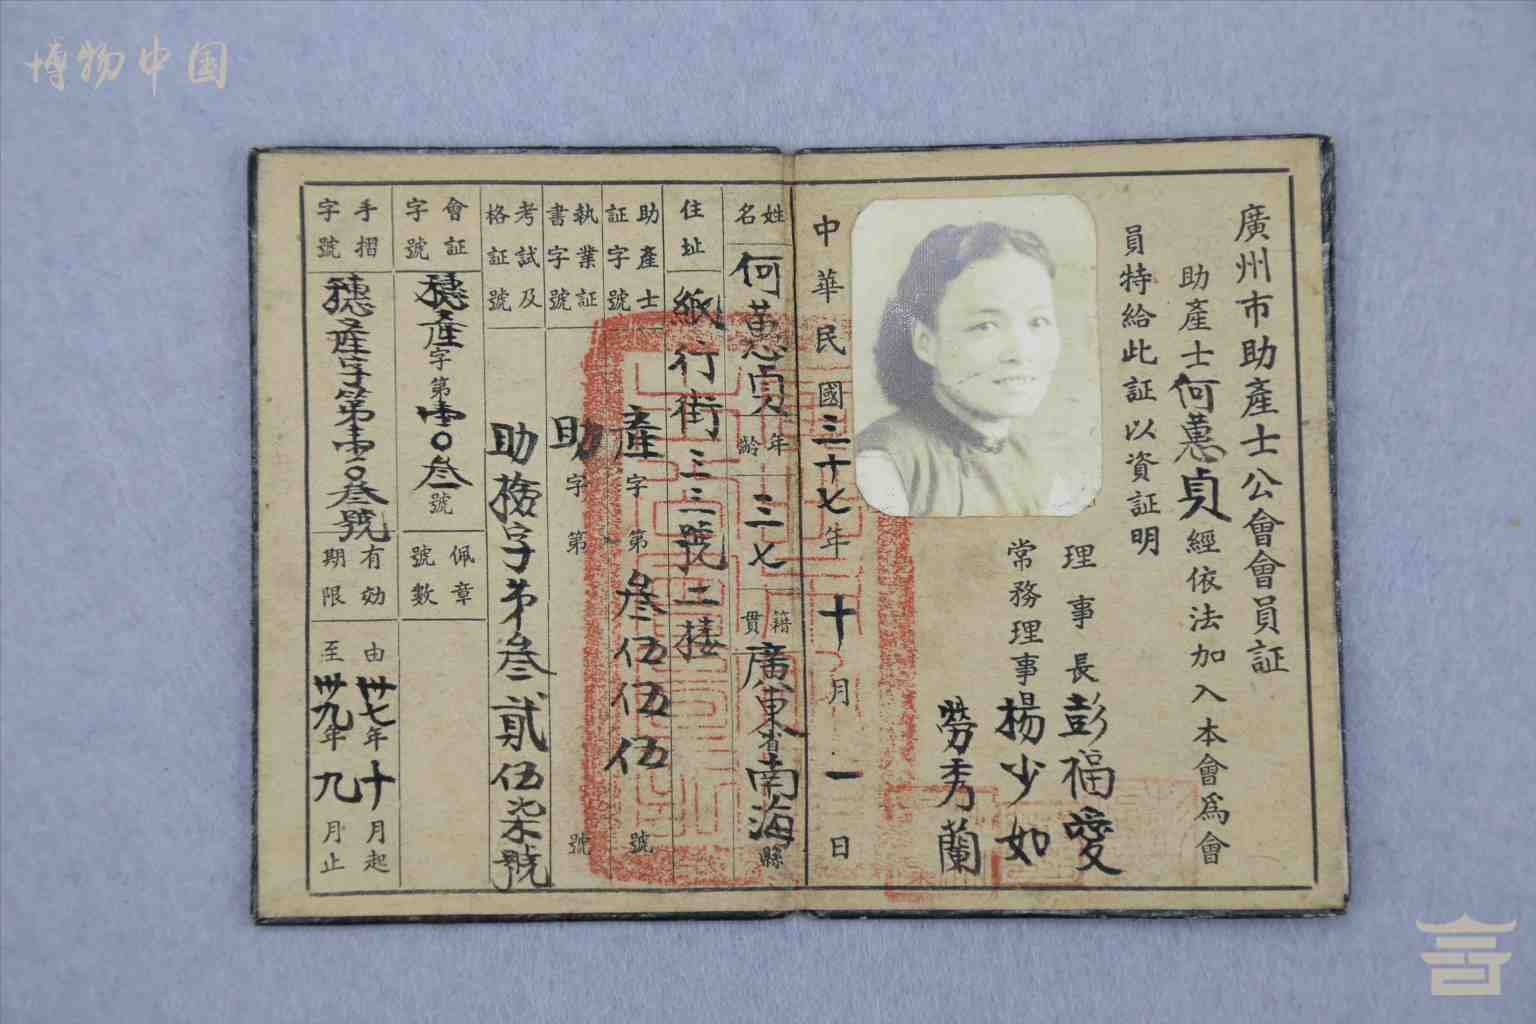 博物中国
廣州市助產士公會會員証
助產士何蕙貞經依法加入本會爲會
員特給此証以資証明
理事長彭福愛
常務理事楊少如
勞秀蘭
中華民國三十七年十月一日
姓名 何蕙貞 年齡 三七 籍贯 廣東省南海縣
住址 紙行街三三號二楼
助產士証字號 產字第叁伍伍伍號
執業証書字號 助字第 號
考試及格証號 助檢字第叁貳伍柒號
會証字號 穗產字第壹〇叁號 佩章號數
手摺字號 穗產字第壹〇叁號 有効期限 由卅七年十月起
至卅九年九月止